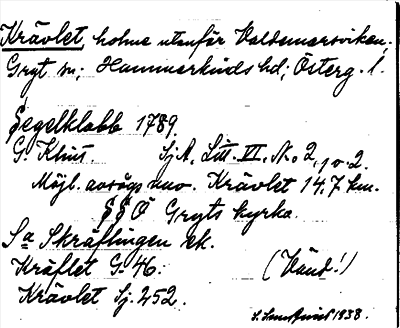 Krävlet, holme utanför Valdemarsviken,
Gryt sn; Hammarkinds hd; Österg. l.
Segelklabb 1789.
G. Klint. Sj.A, Litt. VI, No 2, 1 o. 2.
Möjl. avsågs nuv. Krävlet 14.7 km.
SSÖ Gryts kyrka.
Sa Skräflingen ek.
Kräflet G. 46. (Vänd!)
Krävlet Sj. 252.
1938.